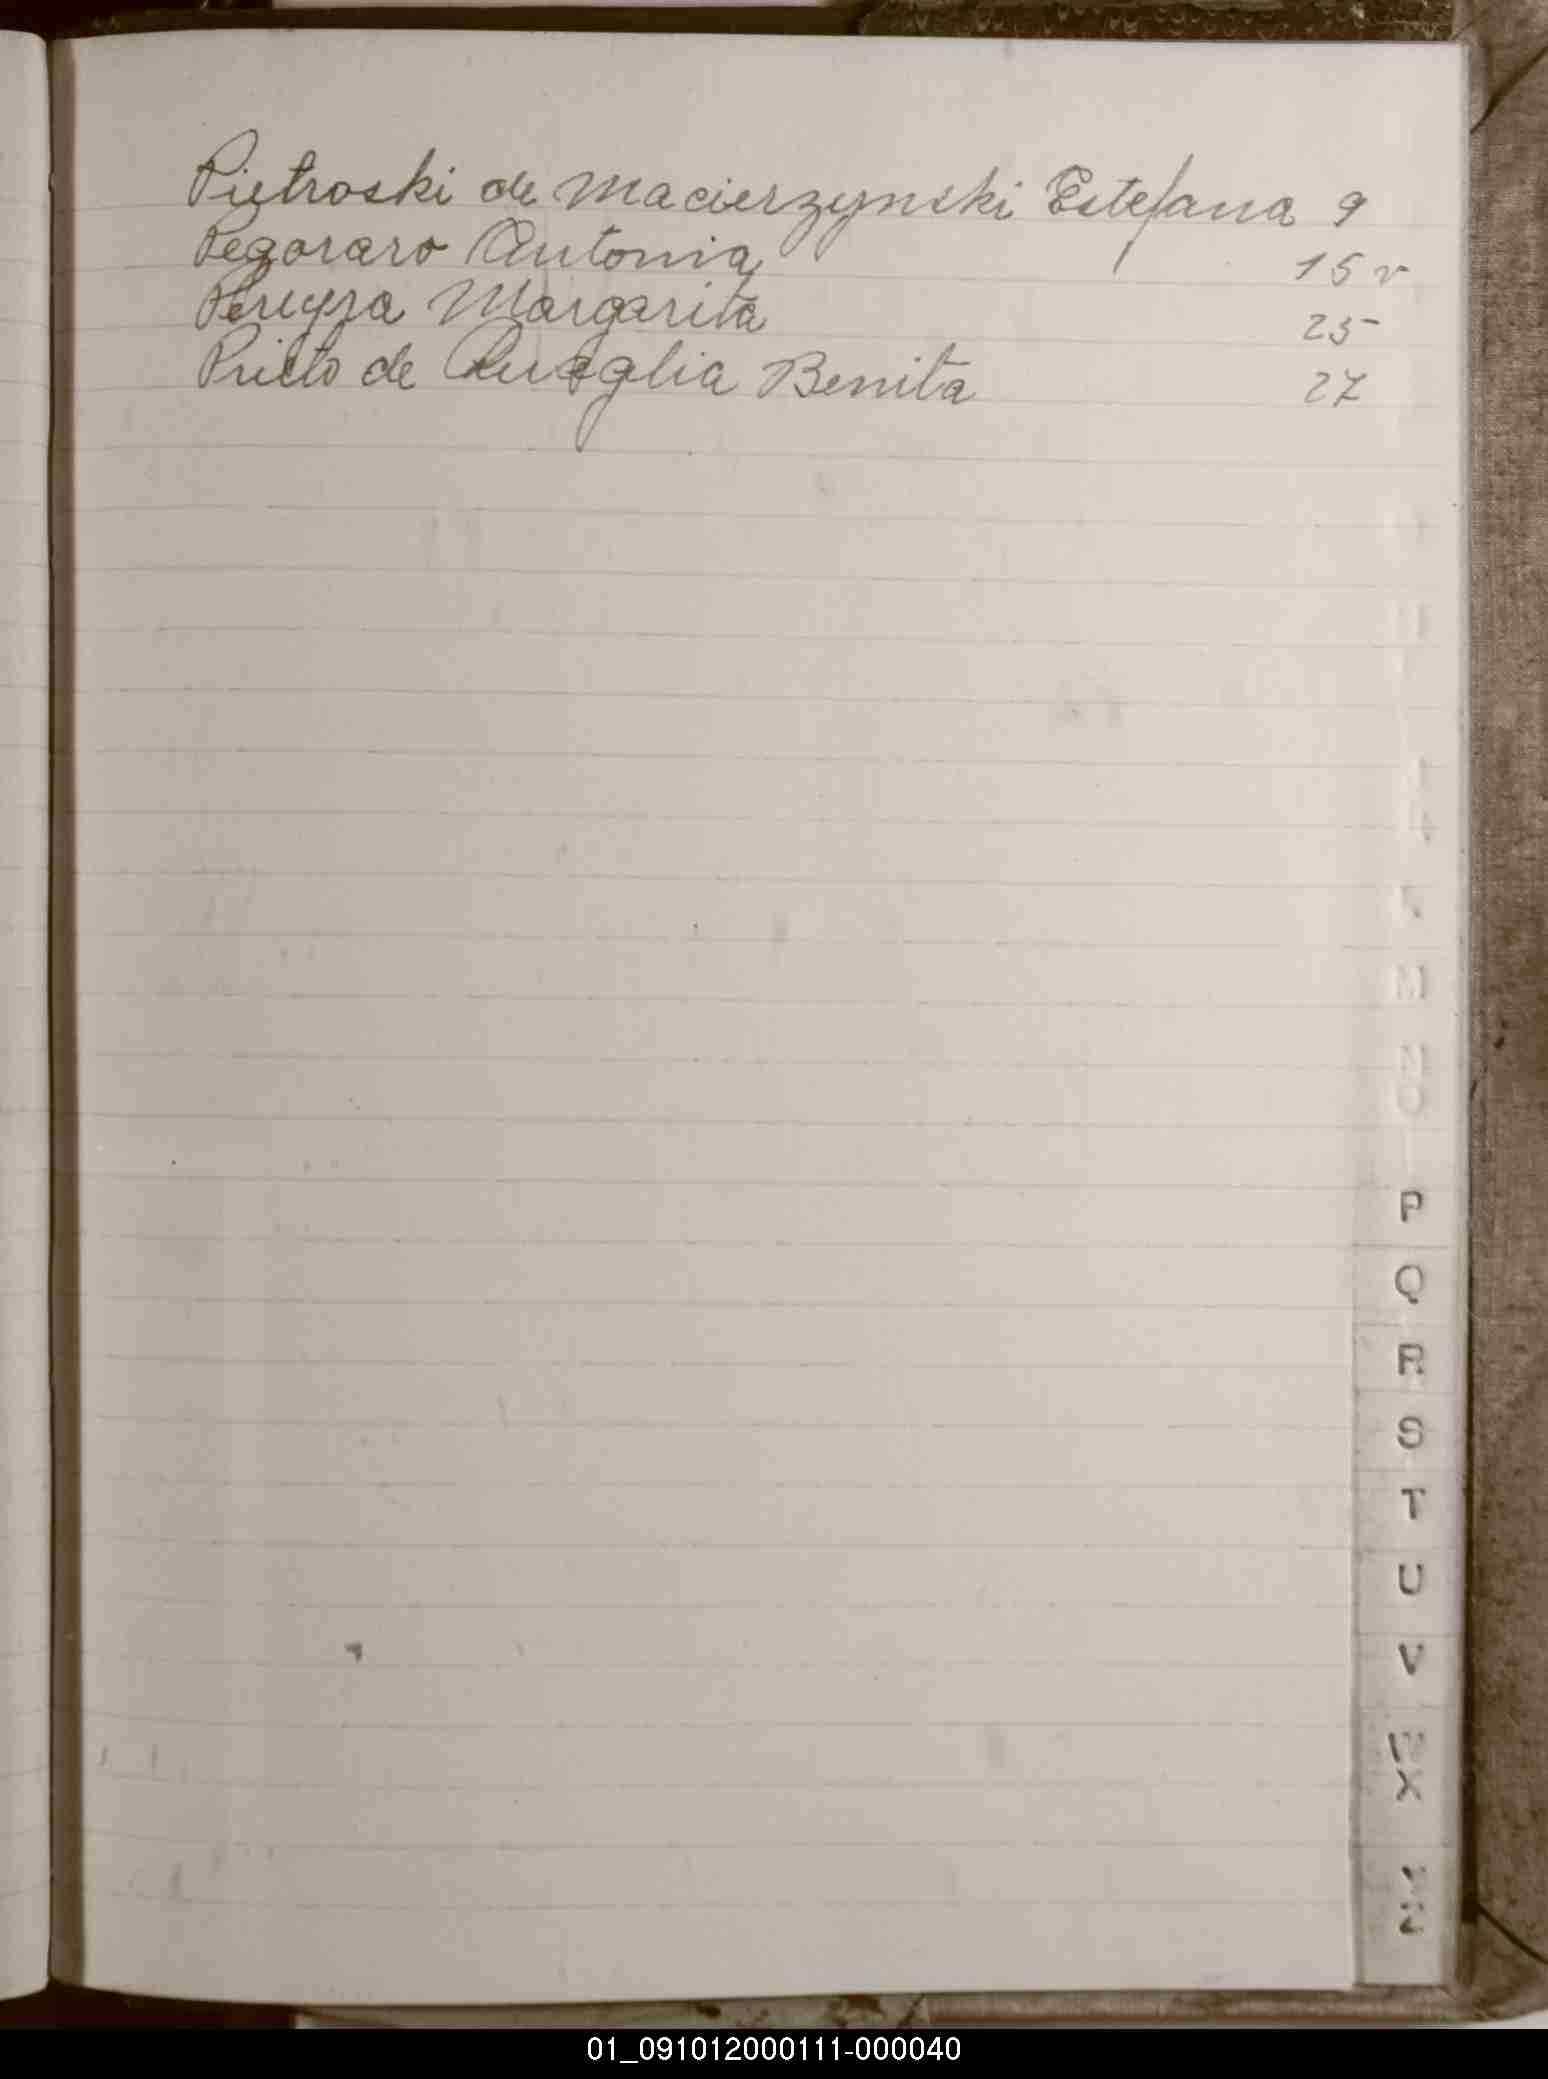 Pietroski de Macierzynski Estefana 9
Pegoraro Antonia 15 v
Pereyra Margarita 25
Prieto de Quaglia Benita 27
M
N
O
P
Q
R
S
T
U
V
W
X
01_091012000111-000040